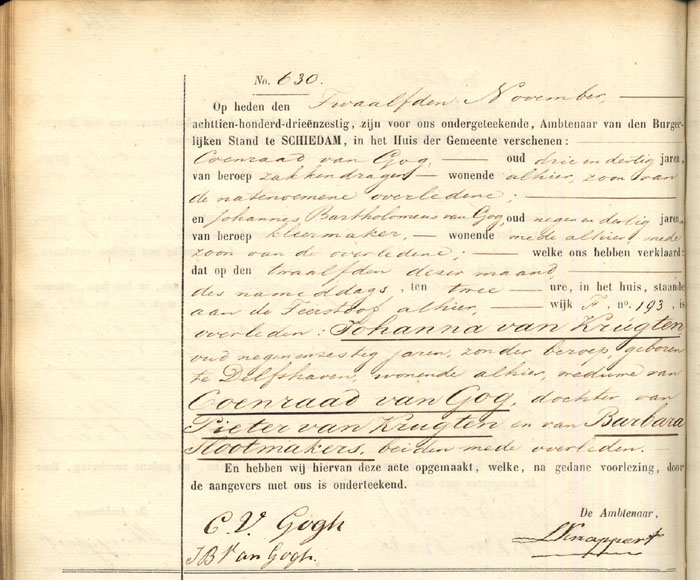 No. 630.
Op heden den Twaalfden November,
achttien-honderd-drieënzestig, zijn voor ons ondergeteekende, Ambtenaar van den Burger-
lijken Stand te SCHIEDAM, in het Huis der Gemeente verschenen:
Coenraad van Gog, — oud drie en dertig jaren,
van beroep zakkendrager, — wonende alhier, zoon van
de natenoemene overledene;
en Johannes Bartholomeus van Gog, oud negen en dertig jaren
van beroep kleermaker, — wonende mede alhier, mede
zoon van de overledene; — welke ons hebben verklaard:
dat op den twaalfden dezer maand,
des nameddags, ten twee — ure, in het huis, staande
aan de alhier, — wijk F, no. 193, is
overleden: Johanna van Krugten
oud negenenzestig jaren, zonder beroep, geboren
te Delfshaven, wonende alhier, weduwe van
Coenraad van Gog, dochter van
Pieter van Krugten en van Barbara
Slootmakers, beiden mede overleden. —
En hebben wij hiervan deze acte opgemaakt, welke, na gedane voorlezing, door
de aangevers met ons is onderteekend.
De Ambtenaar,
C V. Gogh
J B Van Gogh.
Knappert